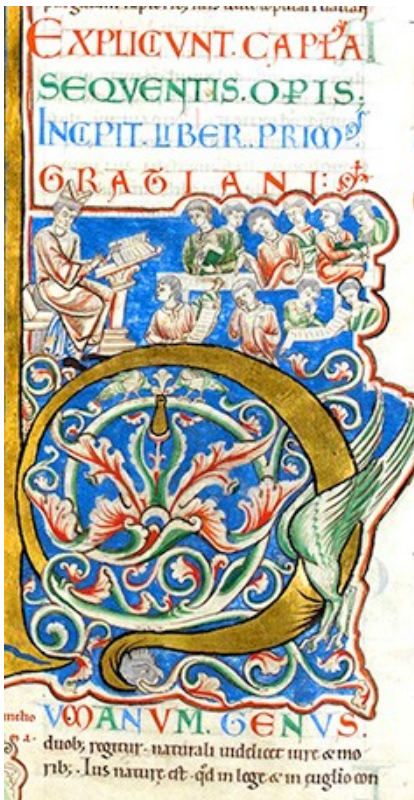 EXPLICIVNT. CAPLA
SEQVENTIS. OPIS;
INCIPIT. LIBER. PRIMꝰ
GRATIANI:
VMANVM. GENVS.
duob; regitur. naturali uidelicet iure & mo
rib;. Ius nature est. qd in lege & in euglio con